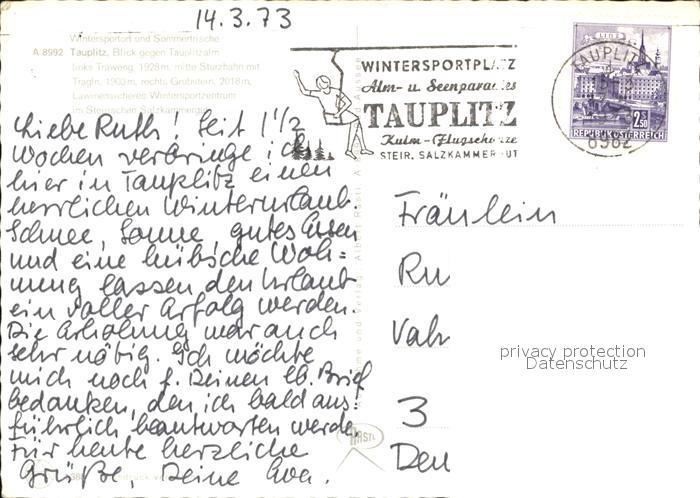 14.3.73
Wintersport und Sommerfrische
A 8992 Tauplitz, Blick gegen Tauplitzalm
links Traweng, 1928m, mitte Sturzhahn mit
Tragln, 1903m, rechts Grubstein, 2018m,
Lawinensicheres Wintersportzentrum
im Steirischen Salzkammergut
WINTERSPORTPLATZ
Alm- u. Seenparadies
TAUPLITZ
Kulm-Flugschanze
STEIR. SALZKAMMERGUT
TAUPLITZ
8982
2.50
REPUBLIK ÖSTERREICH
Liebe Ruth! Seit 1 1/2
Wochen verbringe ich
hier in Tauplitz einen
herrlichen Winterurlaub.
Schnee, Sonne, gutes Essen
und eine hübsche Woh=
nung lassen den Urlaub
ein voller Erfolg werden.
Die Erholung war auch
sehr nötig. Ich möchte
mich noch f. Deinen lb. Brief
bedanken, den ich bald aus-
führlich beantworten werde.
Für heute herzliche
Grüße, Deine Eva.
Fräulein
Ru
Vah
3
Den
privacy protection
Datenschutz